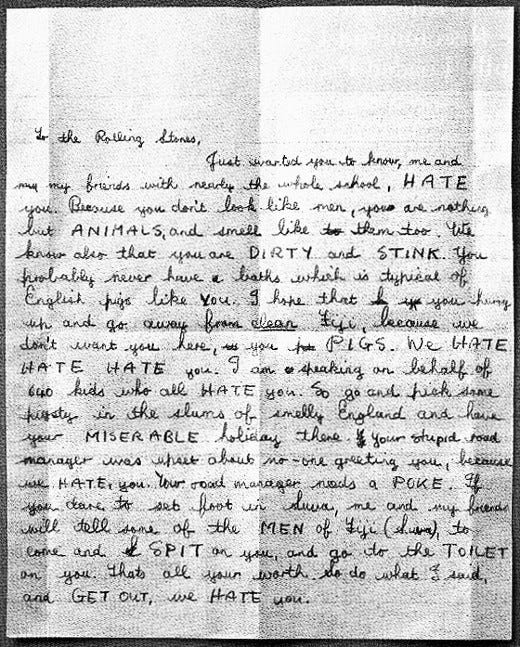 To the Rolling Stones,
Just wanted you to know, me and
my my friends with nearly the whole school, HATE
you. Because you don't look like men, you are nothing
but ANIMALS, and smell like to them too. We
know also that you are DIRTY and STINK. You
probably never have a baths which is typical of
English pigs like you. I hope that you hurry
up and go away from clean Fiji, because we
don't want you here, you PIGS. We HATE
HATE HATE you. I am speaking on behalf of
640 kids who all HATE you. So go and pick some
pigsty in the slums of smelly England and have
your MISERABLE holiday there. If your stupid road
manager was upset about no-one greeting you, because
we HATE, you. Your road manager needs a POKE. If
you dare to set foot in Suva, me and my friends
will tell some of the MEN of Fiji (Suva), to
come and SPIT on you, and go to the TOILET
on you. Thats all your worth. So do what I said,
and GET OUT, we HATE you.